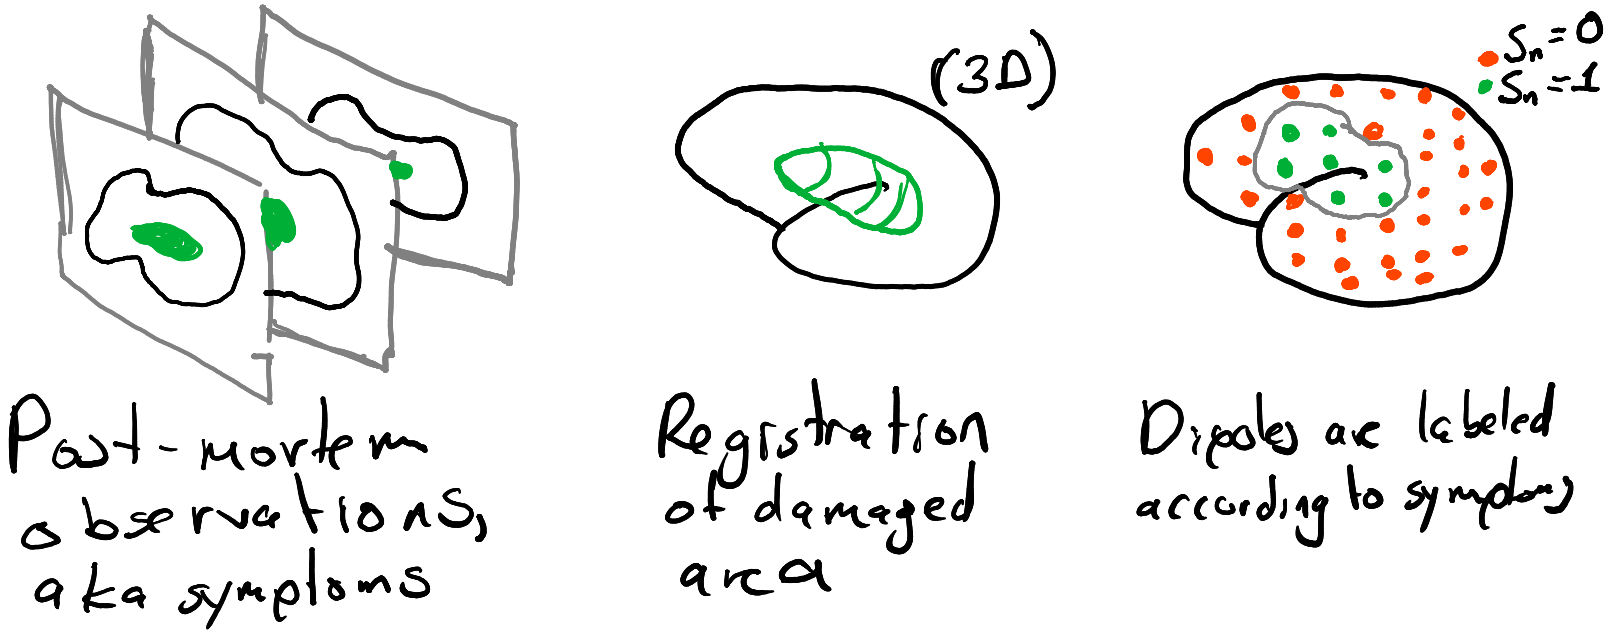 (3D)
Sn=0
Sn=1
Post-mortem
observations,
aka symptoms
Registration
of damaged
area
Dipoles are labeled
according to symptoms